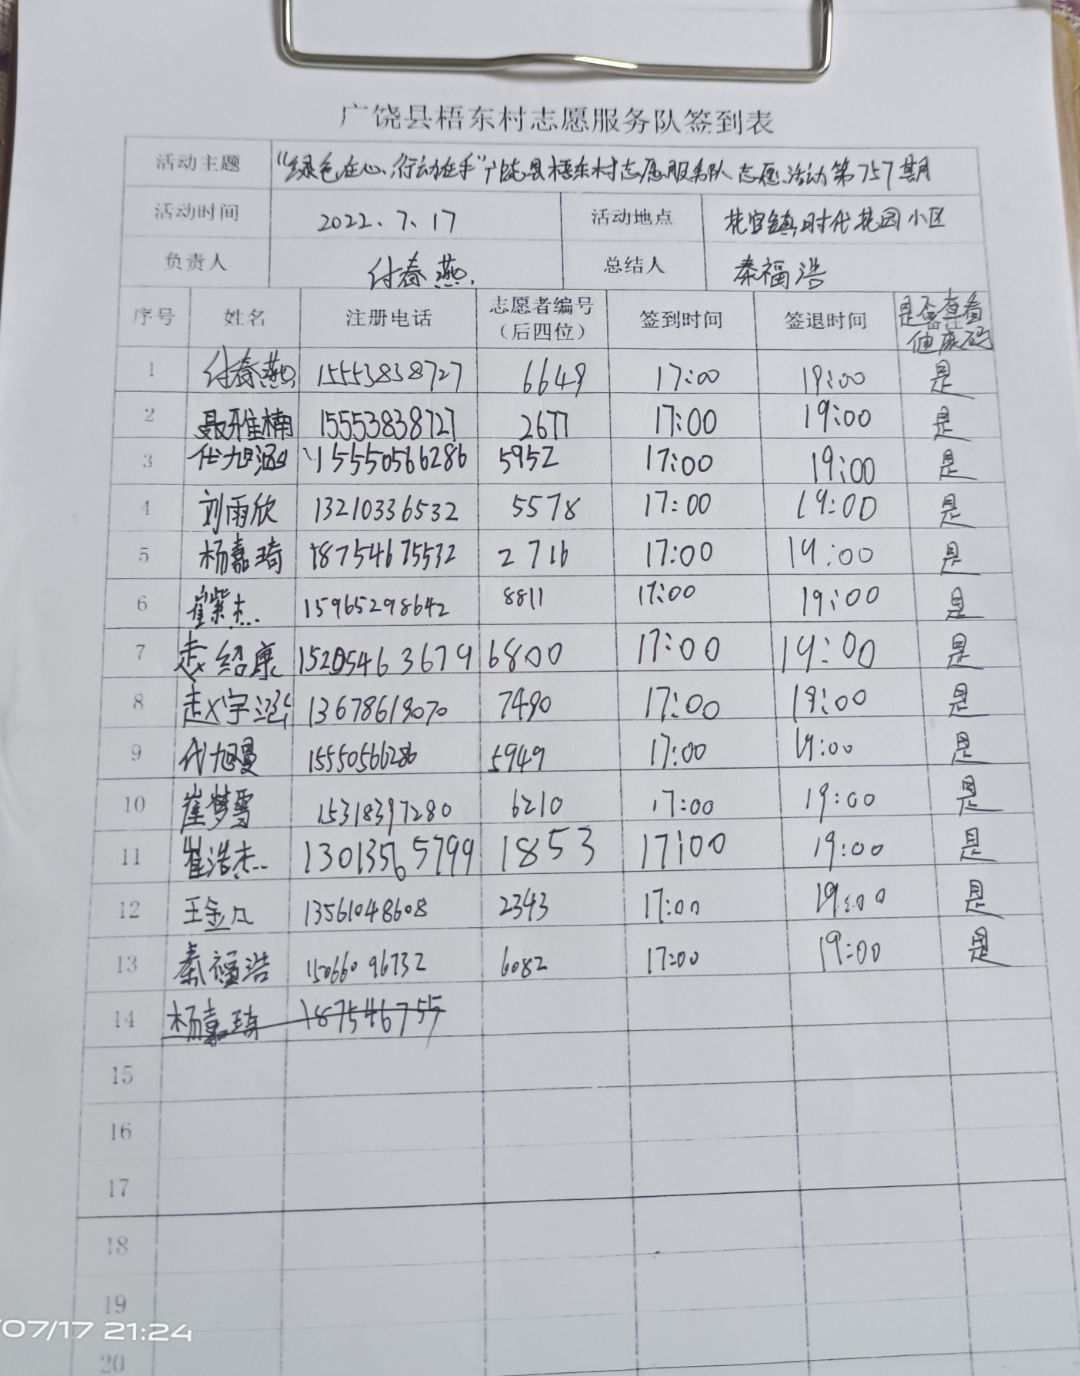 广饶县梧东村志愿服务队签到表
活动主题 "绿色在心、行动在手"广饶县梧东村志愿服务队志愿活动第757期
活动时间 2022.7.17 活动地点 花官镇时代花园小区
负责人 付春燕. 总结人 秦福浩
序号 姓名 注册电话 志愿者编号（后四位） 签到时间 签退时间 是否查看健康码
1 付春燕 15553838727 6649 17:00 19:00 是
2 聂雅楠 15553838727 2677 17:00 19:00 是
3 代旭涵 15550566286 5952 17:00 19:00 是
4 刘雨欣 13210336532 5578 17:00 19:00 是
5 杨嘉琦 18754675532 2716 17:00 19:00 是
6 崔紫杰 15965298642 8811 17:00 19:00 是
7 赵绍康 15205463679 6800 17:00 19:00 是
8 赵宇涵 13678619070 7490 17:00 19:00 是
9 代旭曼 15550566286 5949 17:00 19:00 是
10 崔梦雪 15318397280 6210 17:00 19:00 是
11 崔浩杰 13013565799 1853 17:00 19:00 是
12 王金凡 13561048608 2343 17:00 19:00 是
13 秦福浩 15066096732 6082 17:00 19:00 是
14 杨嘉琦 187546755
15
16
17
18
19
20
/07/17 21:24